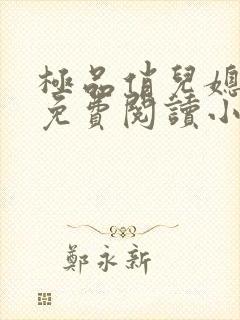 極品俏兒媳
免費閱讀小
鄭永新